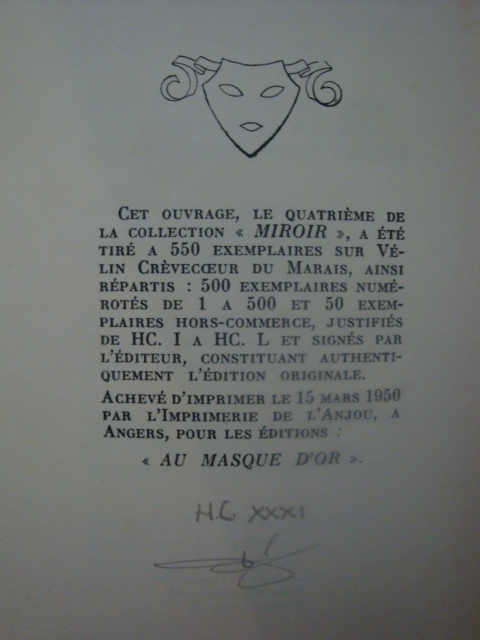 CET OUVRAGE, LE QUATRIÈME DE
LA COLLECTION « MIROIR », A ÉTÉ
TIRÉ A 550 EXEMPLAIRES SUR VÉ-
LIN CRÈVECŒUR DU MARAIS, AINSI
RÉPARTIS : 500 EXEMPLAIRES NUMÉ-
ROTÉS DE 1 A 500 ET 50 EXEM-
PLAIRES HORS-COMMERCE, JUSTIFIÉS
DE HC. I A HC. L ET SIGNÉS PAR
L'ÉDITEUR, CONSTITUANT AUTHENTI-
QUEMENT L'ÉDITION ORIGINALE.
ACHEVÉ D'IMPRIMER LE 15 MARS 1950
PAR L'IMPRIMERIE DE L'ANJOU, A
ANGERS, POUR LES ÉDITIONS :
« AU MASQUE D'OR ».
H.C XXXI